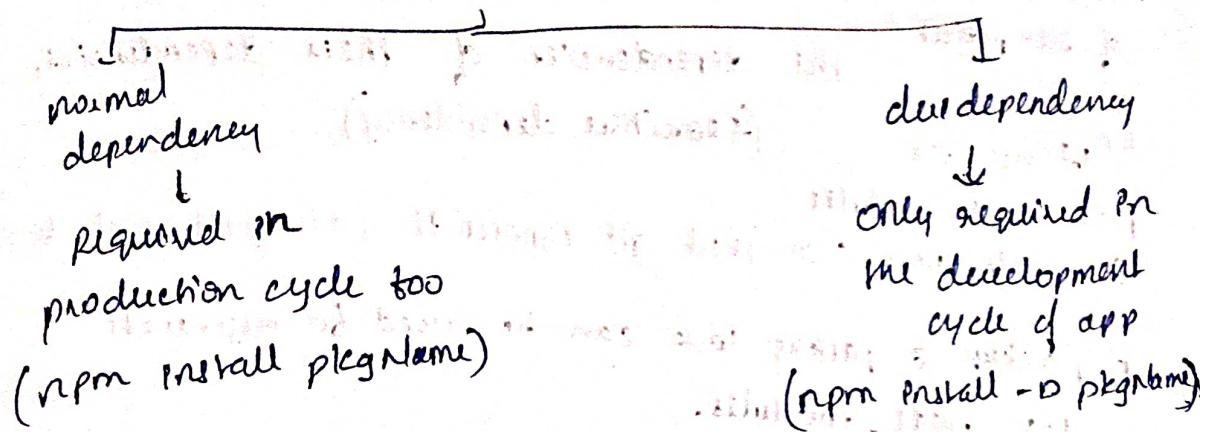 normal
dependency
Required in
production cycle too
(npm install pkgName)
devdependency
only required in
the development
cycle of app
(npm install -D pkgName)